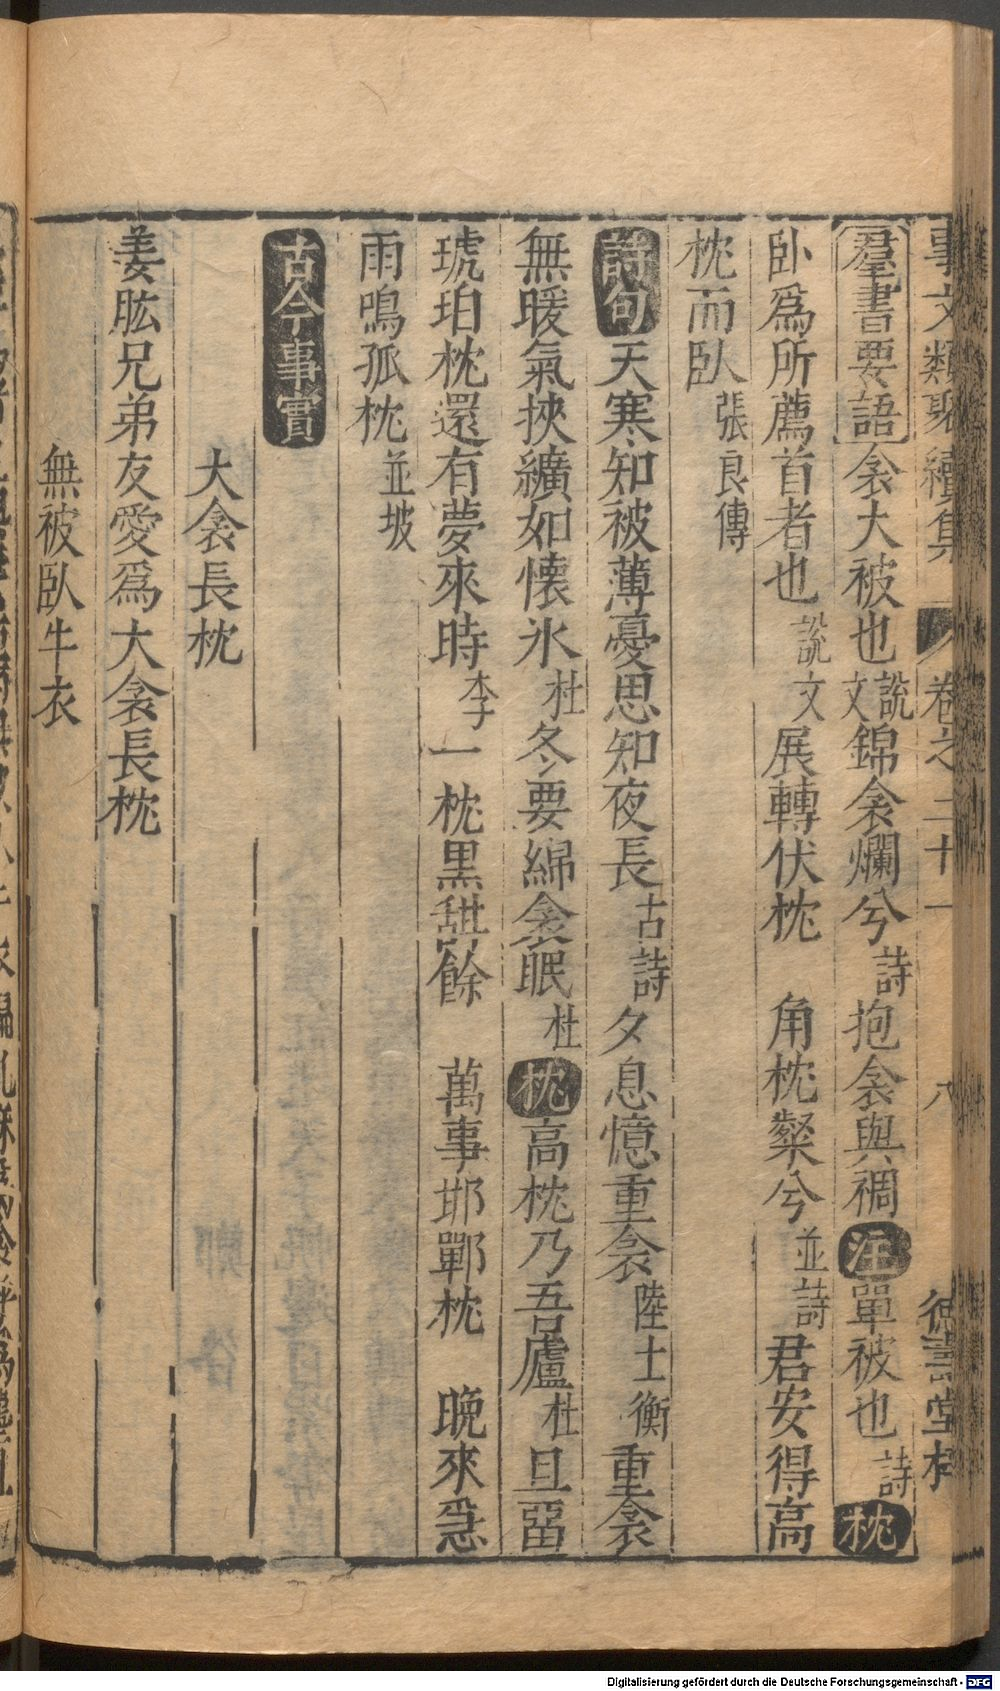 事文類聚續集 卷之二十一 八 德壽堂梓
羣書要語 衾大被也說文錦衾爛兮詩抱衾與裯注單被也詩枕
卧爲所薦首者也說文展轉伏枕 角枕粲兮並詩君安得高
枕而臥張良傳
詩句天寒知被薄憂思知夜長古詩夕息憶重衾陸士衡重衾
無暖氣挾纊如懐氷杜冬要綿衾眠杜枕高枕乃吾廬杜且留
琥珀枕還有夢來時李一枕黒甜餘 萬事邯鄲枕 晩來急
雨鳴孤枕並坡
古今事實
大衾長枕
姜肱兄弟友愛爲大衾長枕
無被臥牛衣
Digitalisierung gefördert durch die Deutsche Forschungsgemeinschaft - DFG